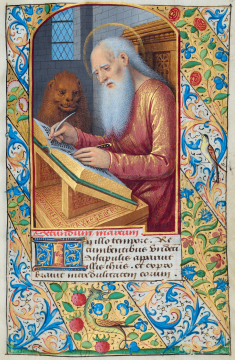 Secundum marcum
In illo tempore. Re
cumbentibus undeci
discipulis aparuit
illis ihus. et expro
brauit incredulitatem eorum